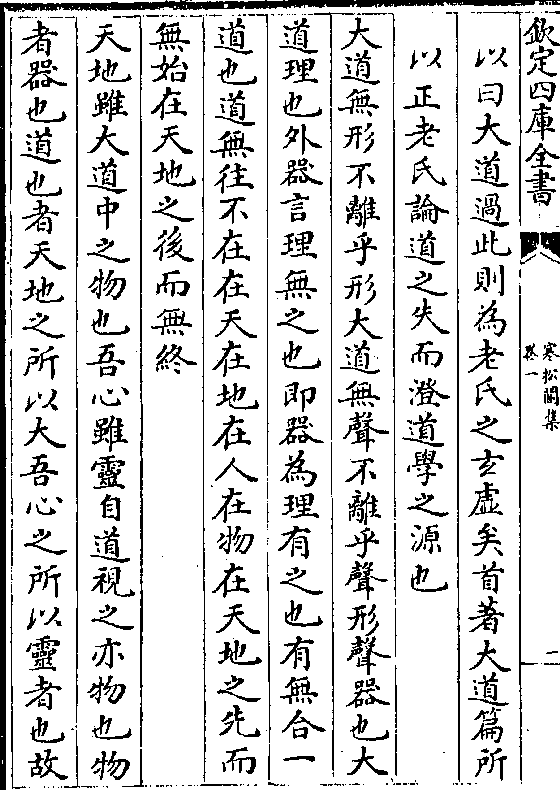 欽定四庫全書
寒松閣集
卷一
二
以曰大道過此則為老氏之玄虛矣首著大道篇所
以正老氏論道之失而澄道學之源也
大道無形不離乎形大道無聲不離乎聲形聲器也大
道理也外器言理無之也即器為理有之也有無合一
道也道無往不在在天在地在人在物在天地之先而
無始在天地之後而無終
天地雖大道中之物也吾心雖靈自道視之亦物也物
者器也道也者天地之所以大吾心之所以靈者也故